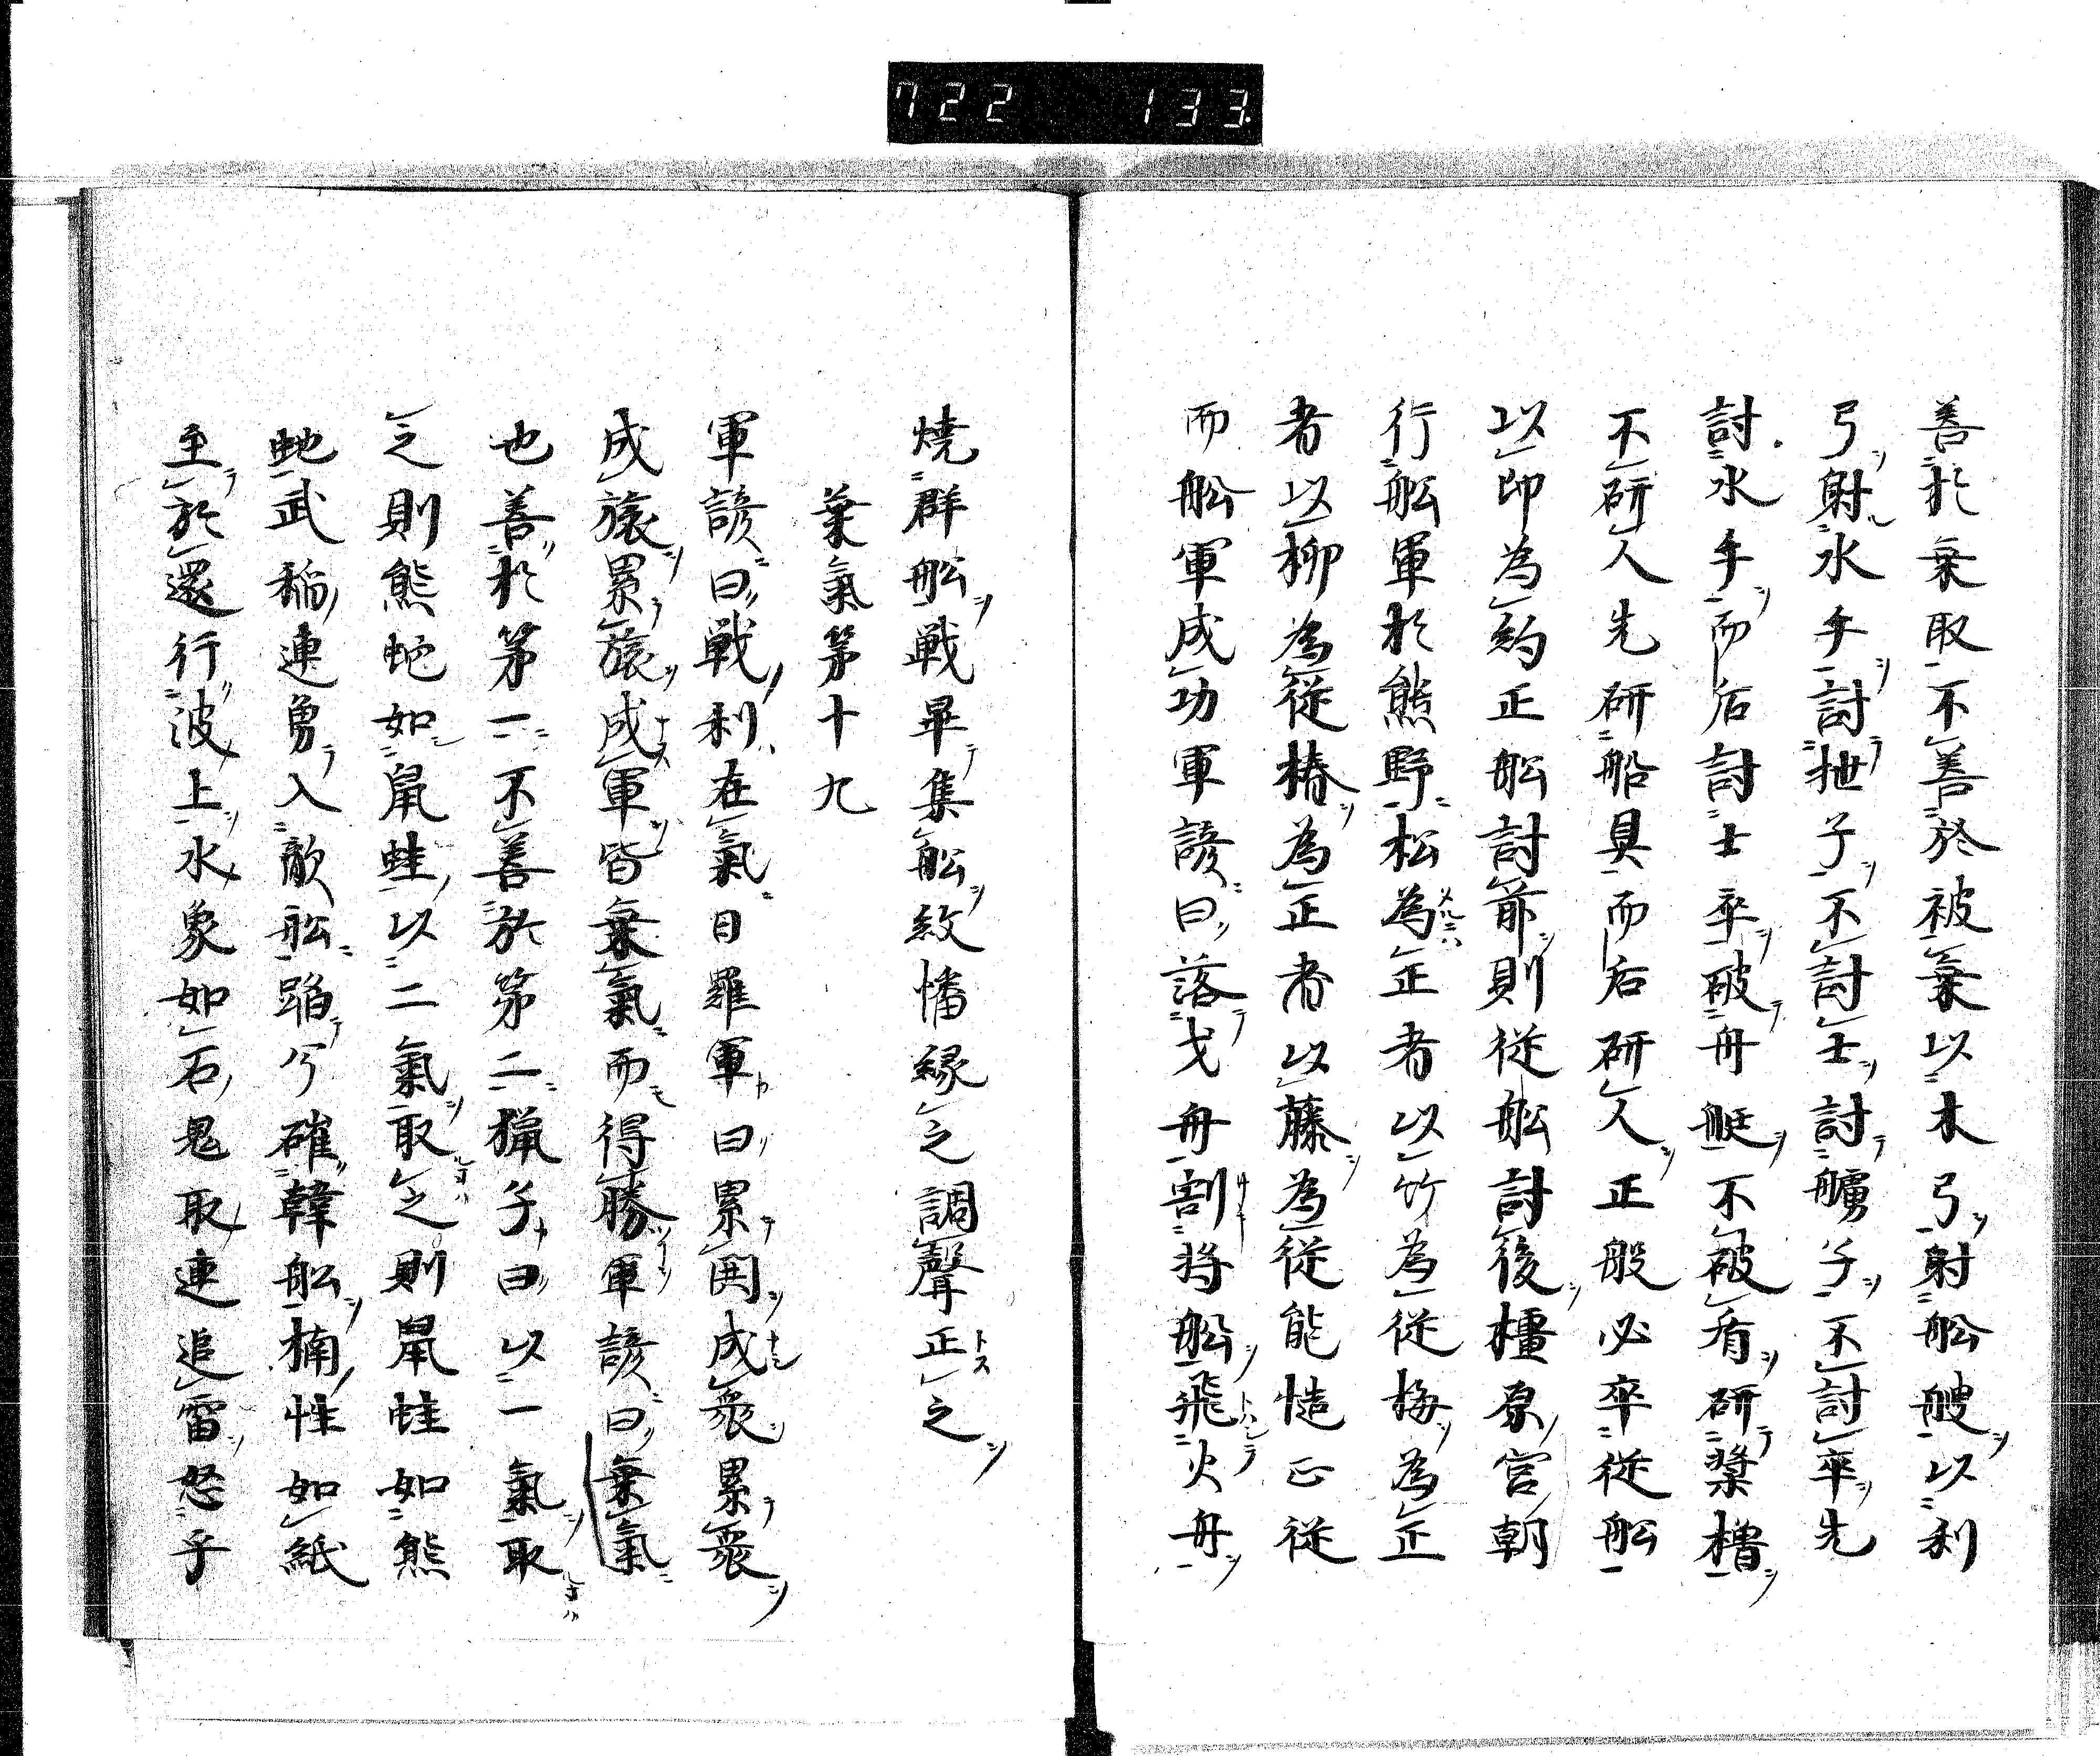 722 133
善於乗取不善於被乗以木弓射舩艘以利
弓射水手討抴子不討士討艣子不討卒先
討水手而后討士卒破舟艇不被看研槳櫓
不研人先研船具而后研人正般必卒従舩
以印為約正舩討前則従舩討後橿原宮朝
行舩軍於熊野松為正者以竹為従梅為正
者以柳為従椿為正者以藤為従能慥正従
而舩軍成功軍諺曰落戈舟割将舩飛火舟
焼群舩戦畢集舩紋幡縁之調聲正之
乗氣第十九
軍諺曰戦利在氣日羅軍曰累閧成衆累衆
成旅累旅成軍皆乗氣而得勝軍諺曰乗氣
也善於第一不善於第二猟子曰以一氣取
之則熊虵如鼠蛙以二氣取之則鼠蛙如熊
虵武稲連勇入敵舩蹈兮碓韓舩楠性如紙
至於還行波上水象如石鬼取連追雷怒乎